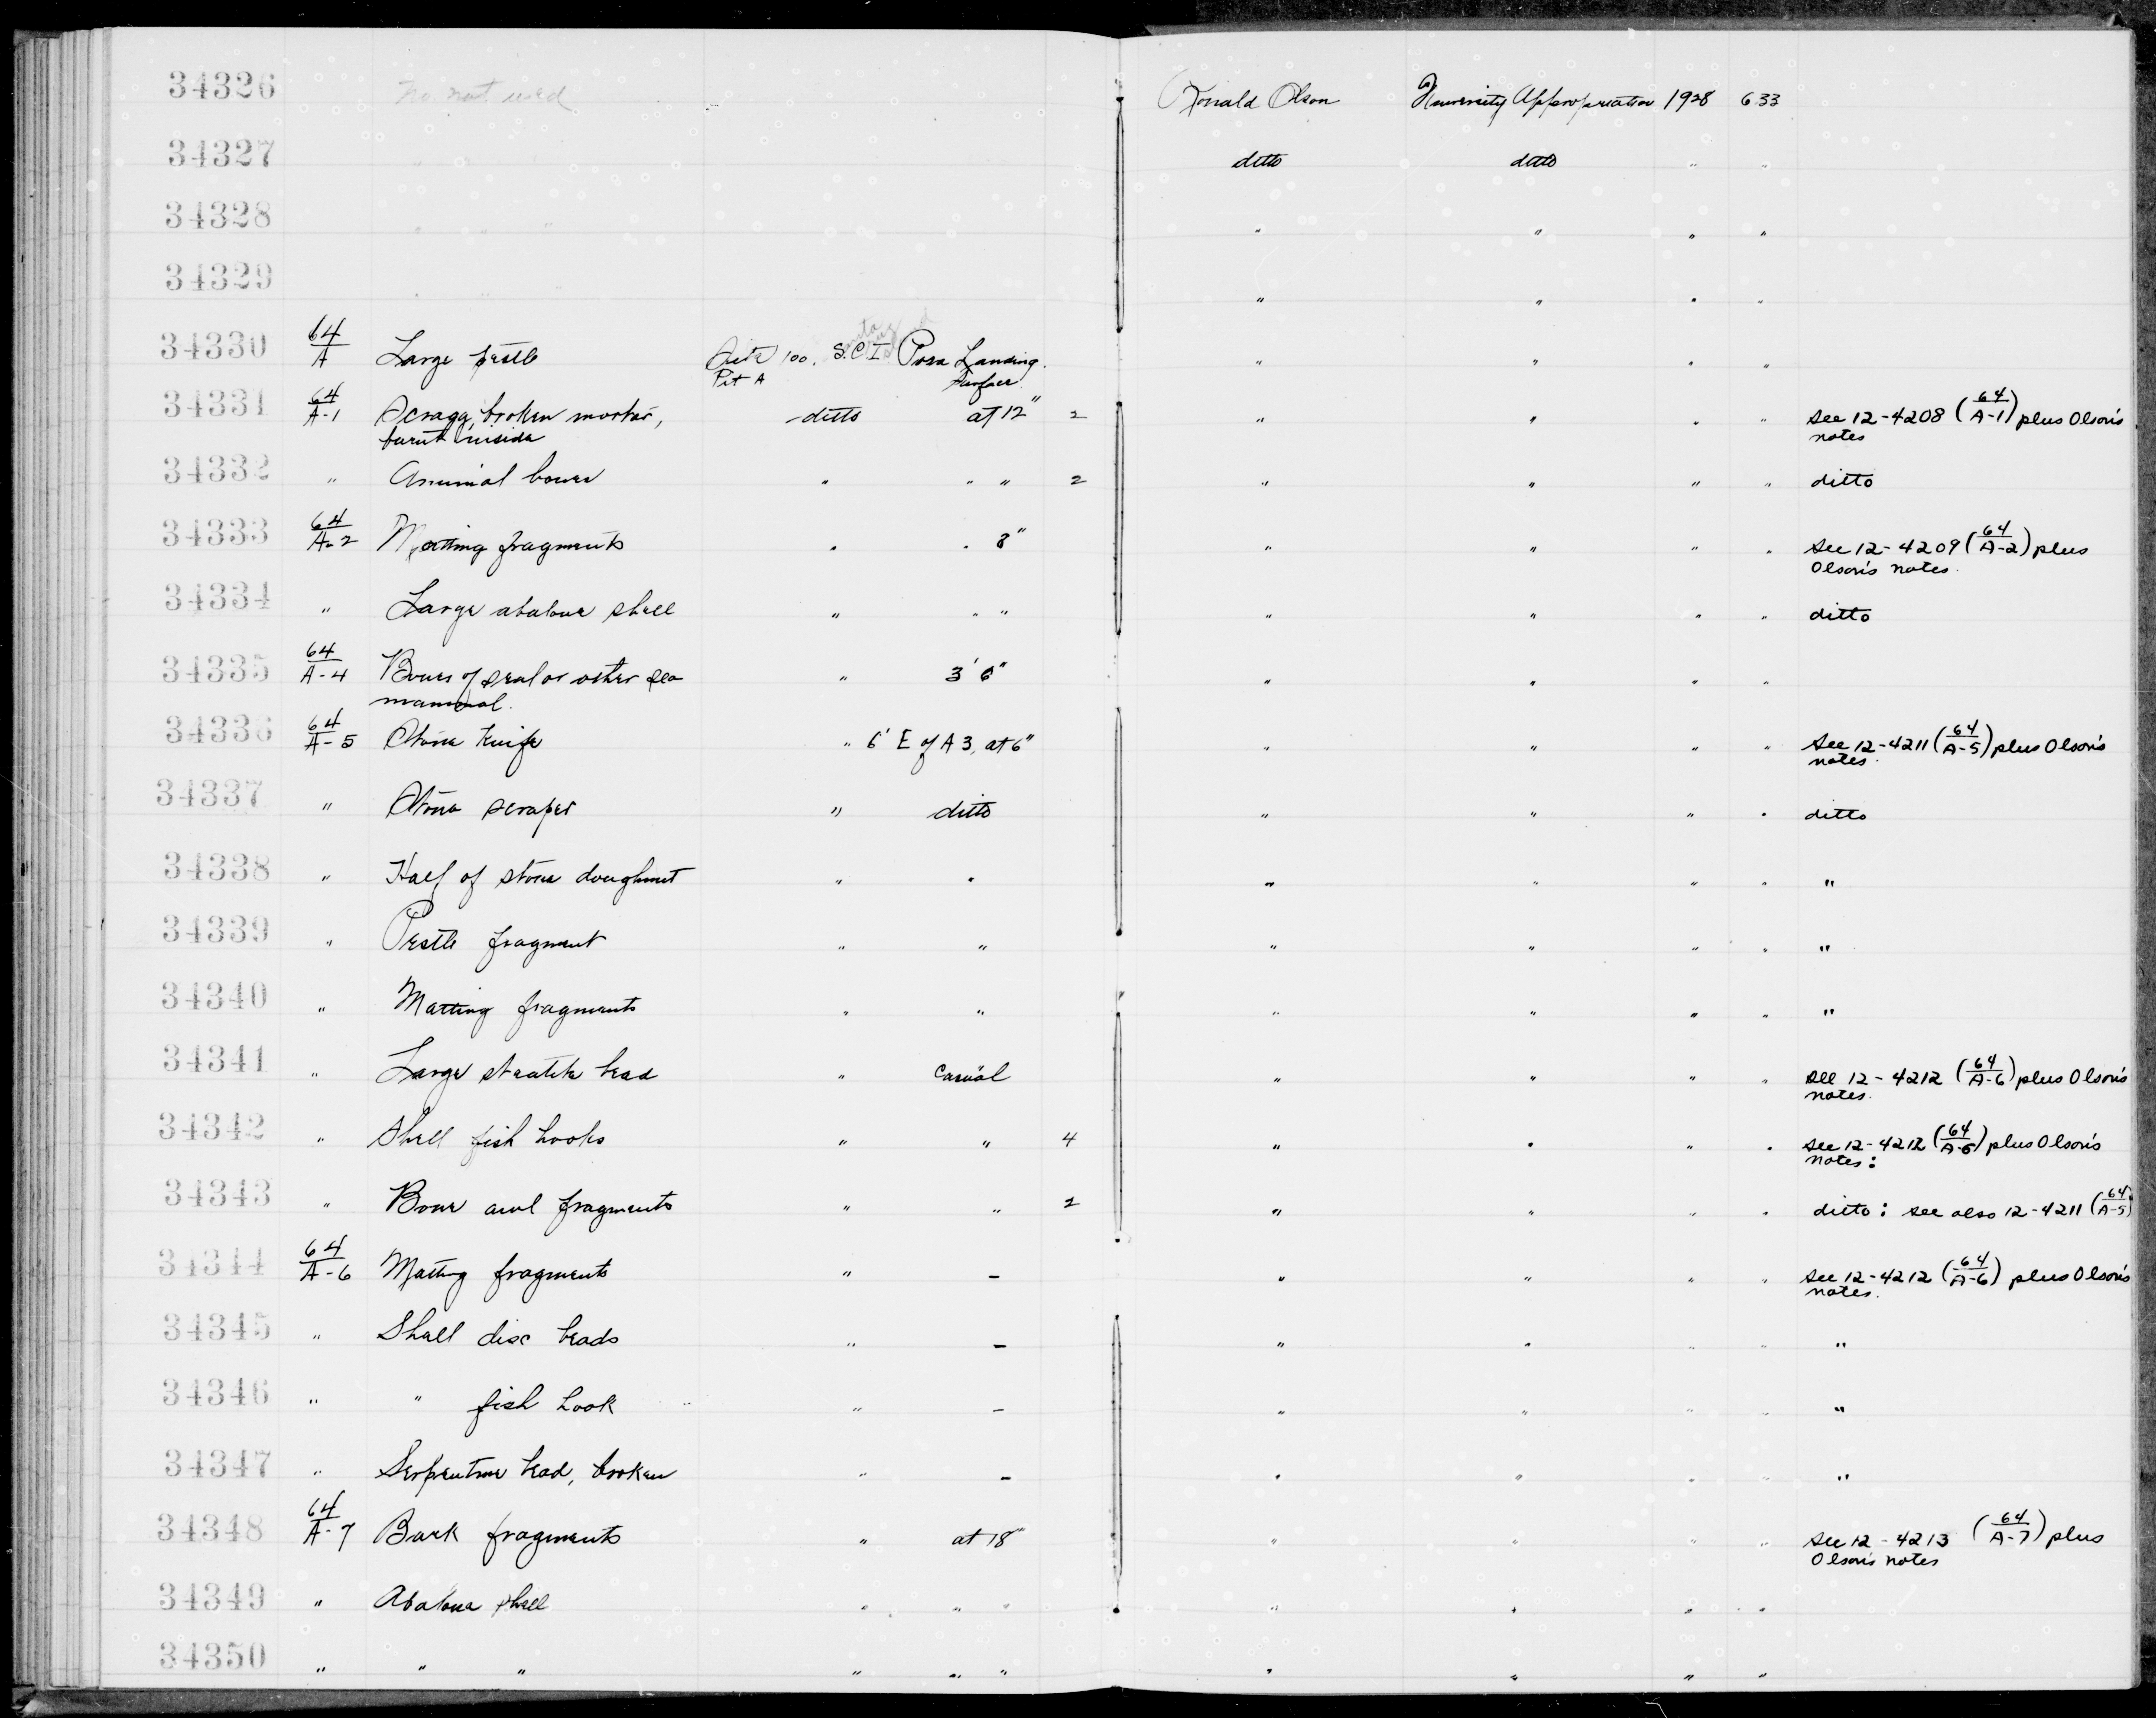 34326 No. not used Ronald Olson University Appropriation 1928 633
34327 " " " ditto ditto " "
34328 " " " " " " "
34329 " " " " " " "
34330 64/A Large pestle Site 100. S.C.I. Posa Landing. " " " "
Pit A Surface
34331 64/A-1 broken mortar, ditto at 12" 2 " " " " See 12-4208 (64/A-1) plus Olson's
burnt inside notes
34332 " Animal bones " " " 2 " " " " ditto
34333 64/A-2 Matting fragments " " 8" " " " " See 12-4209 (64/A-2) plus
Olson's notes.
34334 " Large abalone shell " " " " " " " ditto
34335 64/A-4 Bones of seal or other sea " 3' 6" " " " "
mammal.
34336 64/A-5 Stone knife " 6' E of A 3, at 6" " " " " See 12-4211 (64/A-5) plus Olson's
notes.
34337 " Stone scraper " ditto " " " " ditto
34338 " Half of stone doughnut " " " " " " "
34339 " Pestle fragment " " " " " " "
34340 " Matting fragments " " " " " " "
34341 " Large steatite bead " Casual " " " " See 12-4212 (64/A-6) plus Olson's
notes.
34342 " Shell fish hooks " " 4 " " " " See 12-4212 (64/A-6) plus Olson's
notes:
34343 " Bone awl fragments " " 2 " " " " ditto: see also 12-4211 (64/A-5)
34344 64/A-6 Matting fragments " - " " " " See 12-4212 (64/A-6) plus Olson's
notes.
34345 " Shell disc beads " - " " " " "
34346 " " fish hook " - " " " " "
34347 " Serpentine bead, broken " - " " " " "
34348 64/A-7 Bark fragments " at 18" " " " " See 12-4213 (64/A-7) plus
Olson's notes
34349 " Abalone shell " " " " " " "
34350 " " " " " " " " " "